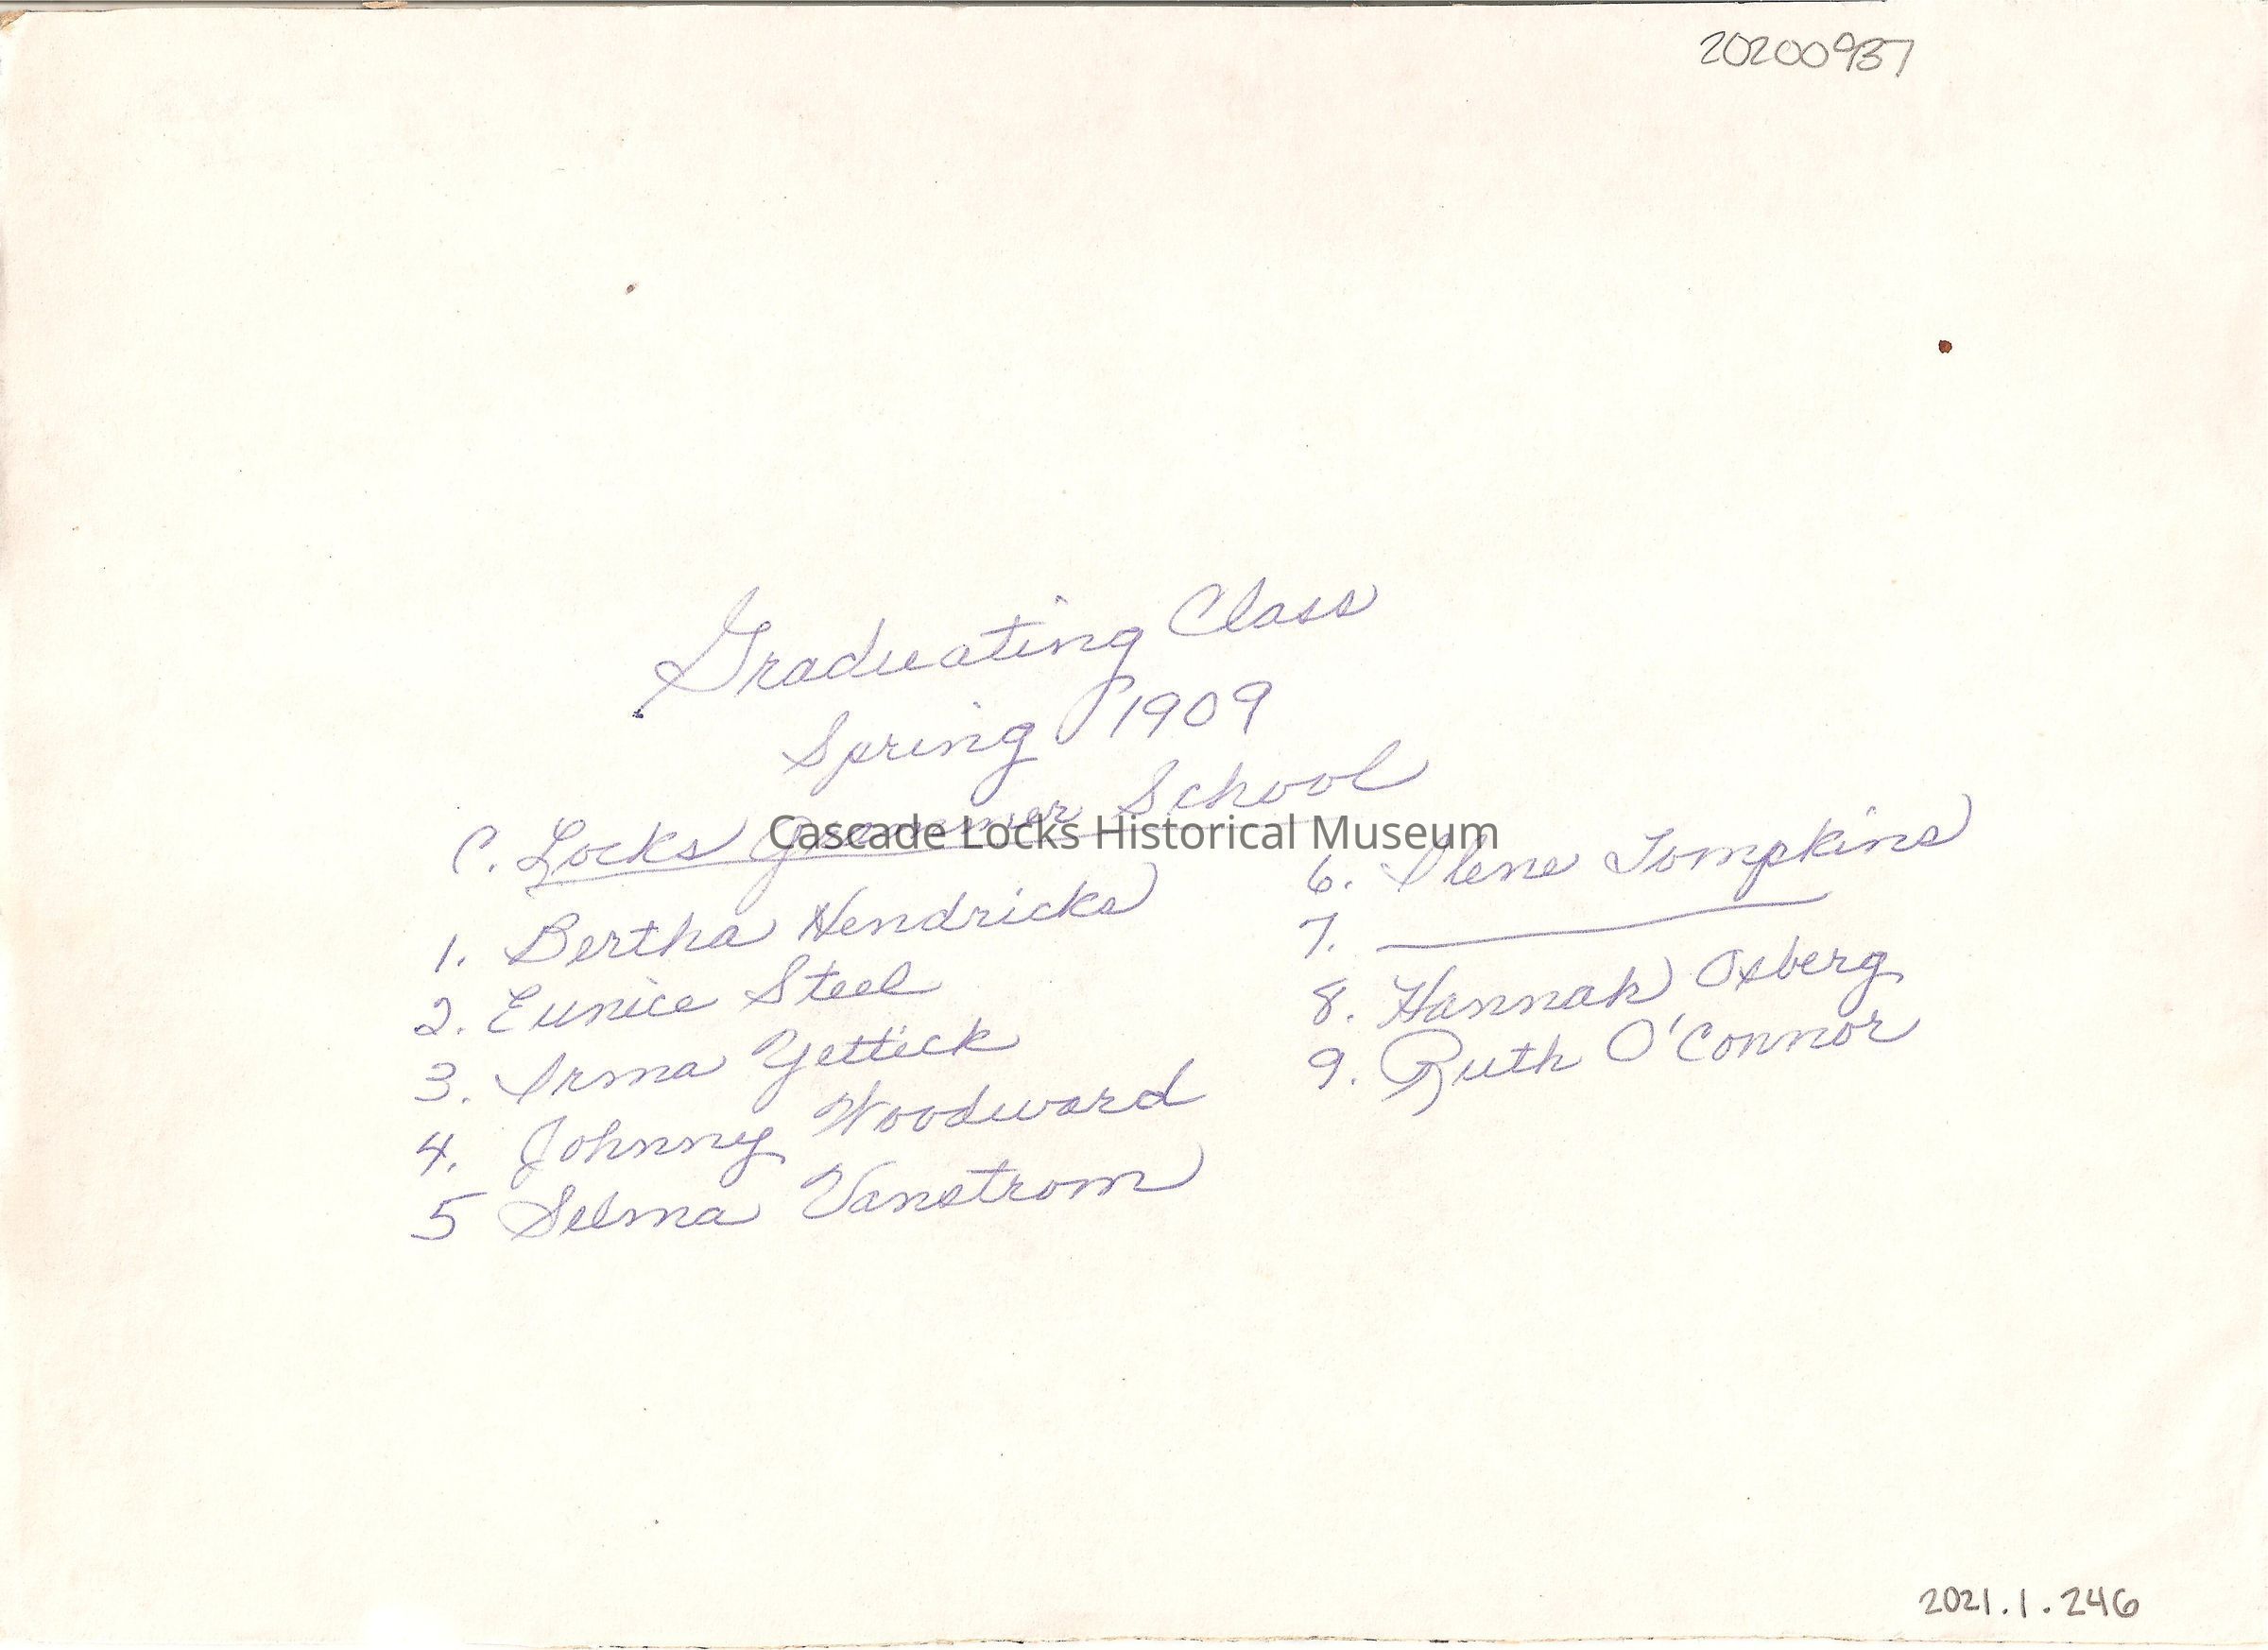 20200937
Graduating Class
Spring 1909
C. Locks Grammer School
Cascade Locks Historical Museum
1. Bertha Hendricks
2. Eunice Steel
3. Irma Yettick
4. Johnny Woodward
5 Selma Vanstrom
6. Ilene Tompkins
7.
8. Hannah Oxberg
9. Ruth O'Connor
2021.1.246